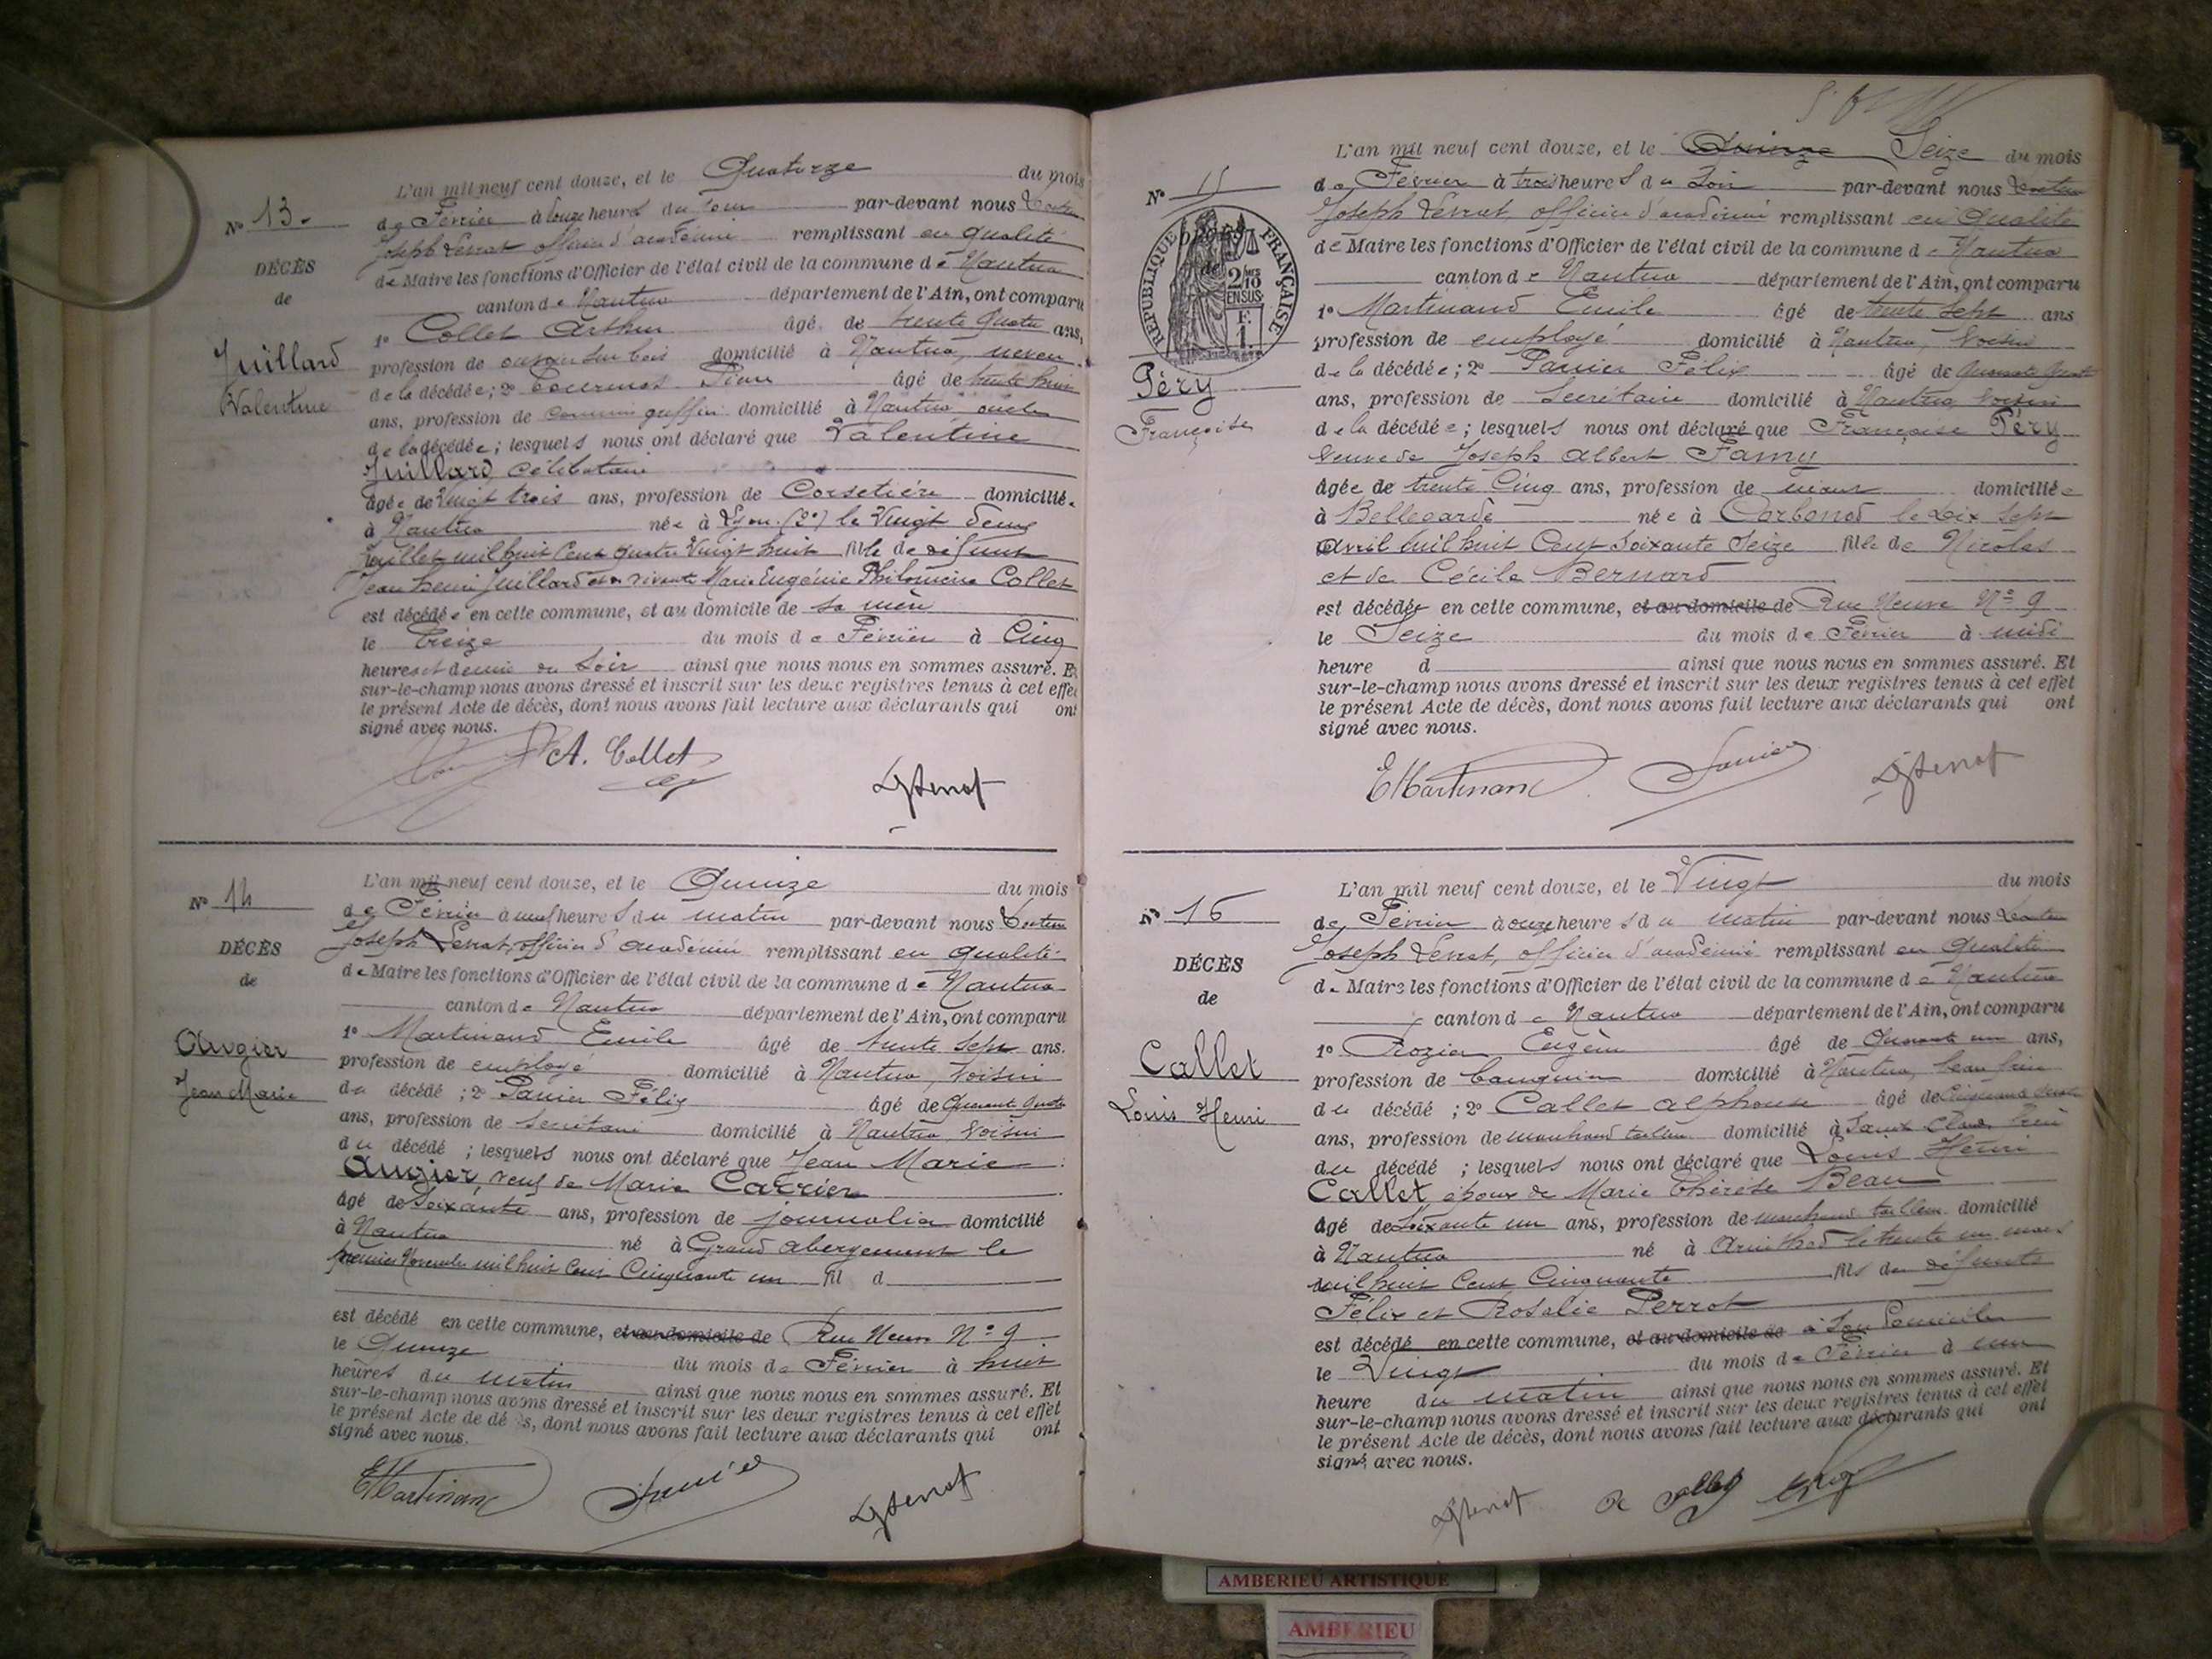 N° 13.
DÉCÈS
de
Juillard
Valentine
L'an mil neuf cent douze, et le Quatorze du mois
de Février à onze heures du par-devant nous
Joseph Levrat officier d'académie remplissant en qualité
de Maire les fonctions d'Officier de l'état civil de la commune de Nantua
canton de Nantua département de l'Ain, ont comparu
1° Collet Arthur âgé de trente quatre ans,
profession de ouvrier sur bois domicilié à Nantua, neveu
de la décédée; 2° Pierre âgé de trente huit
ans, profession de commis greffier domicilié à Nantua oncle
de la décédée; lesquels nous ont déclaré que Valentine
Juillard célibataire
âgée de vingt trois ans, profession de Corsetière domiciliée
à Nantua née à Lyon (2e) le vingt deux
Juillet mil huit cent quatre vingt huit fille de défunt
Jean Henri Juillard et de vivante Marie Eugénie Philomène Collet
est décédée en cette commune, et au domicile de sa mère
le Treize du mois de Février à Cinq
heures et demie du soir ainsi que nous nous en sommes assuré. Et
sur-le-champ nous avons dressé et inscrit sur les deux registres tenus à cet effet
le présent Acte de décès, dont nous avons fait lecture aux déclarants qui ont
signé avec nous.
A. Collet
N° 14
DÉCÈS
de
Augier
Jean Marie
L'an mil neuf cent douze, et le Quinze du mois
de Février à neuf heures du matin par-devant nous Docteur
Joseph Levrat, officier d'académie remplissant en qualité
de Maire les fonctions d'Officier de l'état civil de la commune de Nantua
canton de Nantua département de l'Ain, ont comparu
1° Martinand Emile âgé de trente sept ans.
profession de employé domicilié à Nantua, voisin
du décédé; 2° Panier Félix âgé de Quarante quatre
ans, profession de secrétaire domicilié à Nantua voisin
du décédé; lesquels nous ont déclaré que Jean Marie
Augier, veuf de Marie Carrier
âgé de soixante ans, profession de journalier domicilié
à Nantua né à Grand abergement le
premier Novembre mil huit cent Cinquante un fil d
est décédé en cette commune, et au domicile de Rue Neuve N° 9
le Quinze du mois de Février à huit
heures du matin ainsi que nous nous en sommes assuré. Et
sur-le-champ nous avons dressé et inscrit sur les deux registres tenus à cet effet
le présent Acte de décès, dont nous avons fait lecture aux déclarants qui ont
signé avec nous.
EMartinand
N° 15
RÉPUBLIQUE FRANÇAISE
2/10 EN SUS
F. 1.
Péry
Françoise
L'an mil neuf cent douze, et le Quinze Seize du mois
de Février à trois heures du soir par-devant nous Docteur
Joseph Levrat, officier d'académie remplissant en Qualité
de Maire les fonctions d'Officier de l'état civil de la commune de Nantua
canton de Nantua département de l'Ain, ont comparu
1° Martinand Emile âgé de trente sept ans
profession de employé domicilié à Nantua, voisin
de la décédée; 2° Panier Félix âgé de Quarante quatre
ans, profession de Secrétaire domicilié à Nantua, voisin
de la décédée; lesquels nous ont déclaré que Françoise Péry
veuve de Joseph Albert Famy
âgée de trente Cinq ans, profession de domiciliée
à Bellegarde née à Corbonod le Dix sept
Avril mil huit Cent Soixante Seize fille de Nicolas
et de Cécile Bernard
est décédée en cette commune, et au domicile de Rue Neuve N° 9
le Seize du mois de Février à midi
heure d ainsi que nous nous en sommes assuré. Et
sur-le-champ nous avons dressé et inscrit sur les deux registres tenus à cet effet
le présent Acte de décès, dont nous avons fait lecture aux déclarants qui ont
signé avec nous.
EMartinand
N° 16
DÉCÈS
de
Callet
Louis Henri
L'an mil neuf cent douze, et le Vingt du mois
de Février à onze heures du matin par-devant nous Docteur
Joseph Levrat, officier d'académie remplissant en qualité
de Maire les fonctions d'Officier de l'état civil de la commune de Nantua
canton de Nantua département de l'Ain, ont comparu
1° Rozier Eugène âgé de Quarante un ans,
profession de banquier domicilié à Nantua, beau frère
du décédé; 2° Callet Alphonse âgé de Cinquante
ans, profession de marchand tailleur domicilié à Saint Claude, frère
du décédé; lesquels nous ont déclaré que Louis Henri
Callet époux de Marie Thérèse Beau
âgé de Soixante un ans, profession de marchand tailleur domicilié
à Nantua né à Arinthod le trente un mars
mil huit Cent Cinquante fils de défunts
Félix et Rosalie Perrot
est décédé en cette commune, et au domicile de à son domicile
le Vingt du mois de Février à une
heure du matin ainsi que nous nous en sommes assuré. Et
sur-le-champ nous avons dressé et inscrit sur les deux registres tenus à cet effet
le présent Acte de décès, dont nous avons fait lecture aux déclarants qui ont
signé avec nous.
AMBERIEU ARTISTIQUE
AMBERIEU